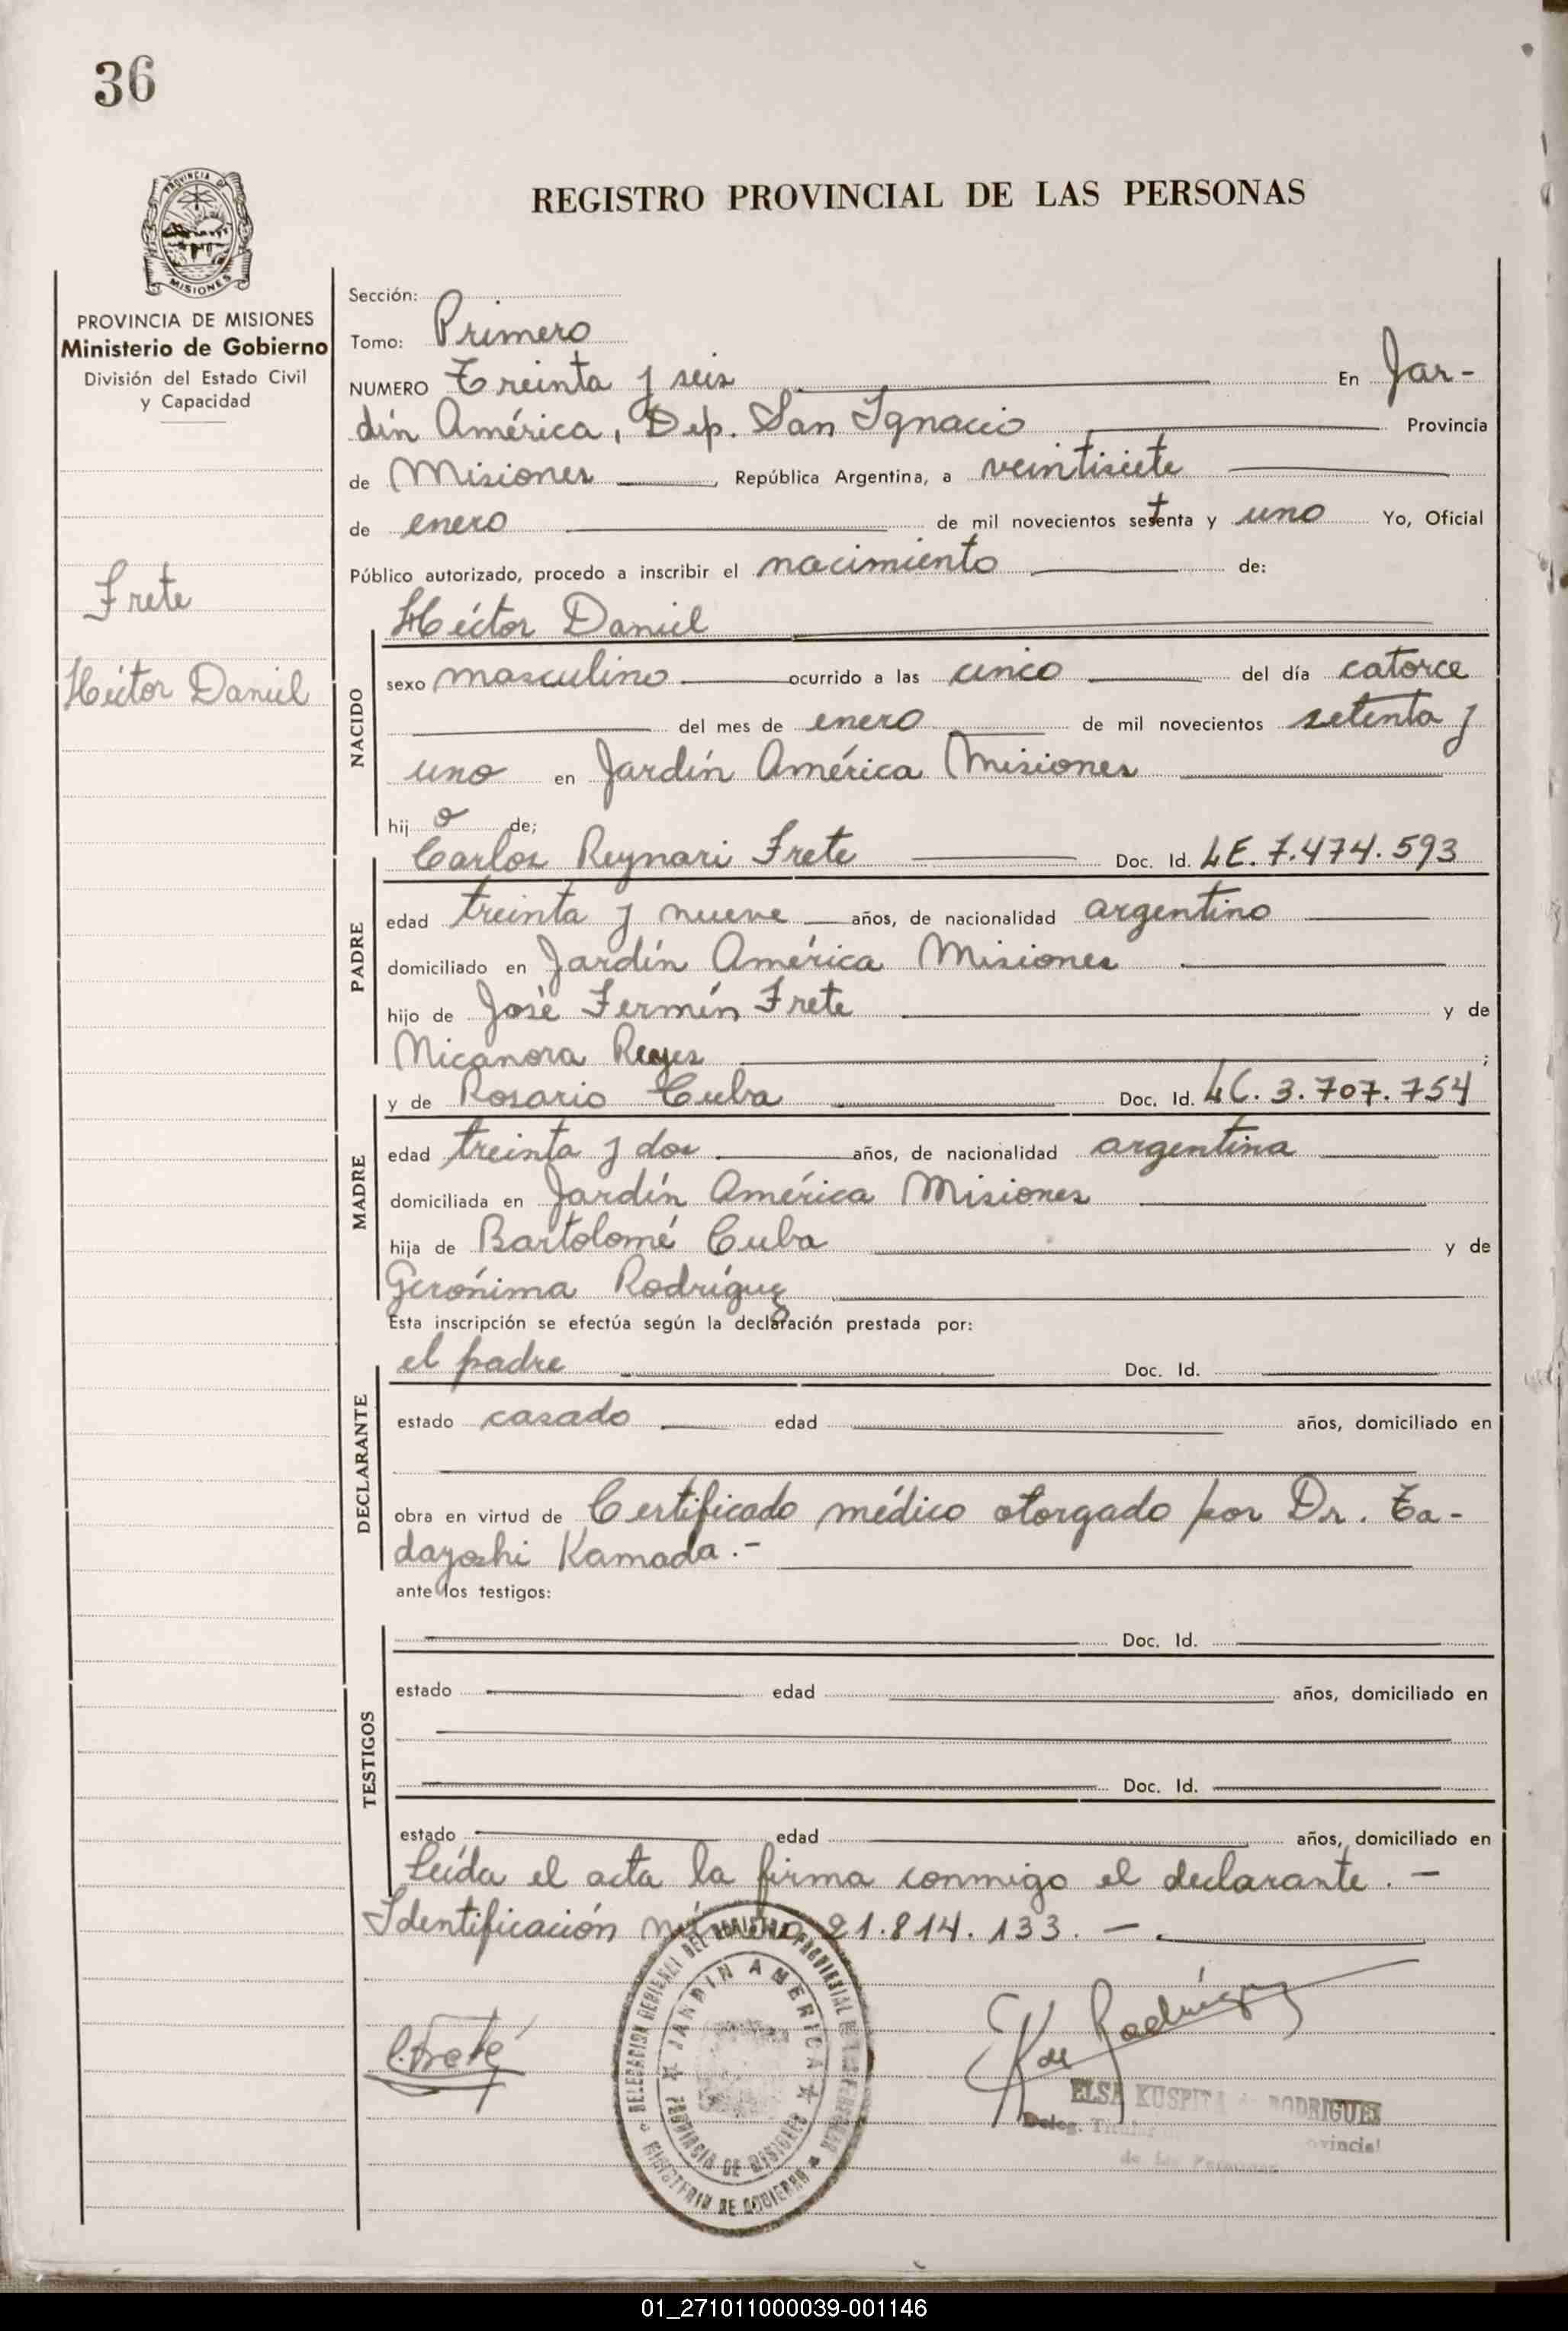 36
PROVINCIA DE
MISIONES
REGISTRO PROVINCIAL DE LAS PERSONAS
PROVINCIA DE MISIONES
Ministerio de Gobierno
División del Estado Civil
y Capacidad
Frete
Héctor Daniel
Sección:
Tomo: Primero
NUMERO Treinta y seis En Jar-
dín América, Dep. San Ignacio Provincia
de Misiones, República Argentina, a veintisiete
de enero de mil novecientos setenta y uno Yo, Oficial
Público autorizado, procedo a inscribir el nacimiento de:
Héctor Daniel
NACIDO
sexo masculino ocurrido a las cinco del día catorce
del mes de enero de mil novecientos setenta y
uno en Jardín América Misiones
hijo de;
Carlos Reynari Frete Doc. Id. LE. 7.474.593
PADRE
edad treinta y nueve años, de nacionalidad argentino
domiciliado en Jardín América Misiones
hijo de José Fermín Frete y de
Nicanora Reyes ;
y de Rosario Cuba Doc. Id. LC. 3.707.754
MADRE
edad treinta y dos años, de nacionalidad argentina
domiciliada en Jardín América Misiones
hija de Bartolomé Cuba y de
Gerónima Rodríguez
Esta inscripción se efectúa según la declaración prestada por:
el padre Doc. Id.
DECLARANTE
estado casado edad años, domiciliado en
obra en virtud de Certificado médico otorgado por Dr. Ta-
dayoshi Kamada.-
ante los testigos:
Doc. Id.
TESTIGOS
estado edad años, domiciliado en
Doc. Id.
estado edad años, domiciliado en
Leída el acta la firma conmigo el declarante. -
Identificación número 21.814.133. -
DELEGACION REGIONAL DEL REGISTRO PROVINCIAL DE LAS PERSONAS
MINISTERIO DE GOBIERNO
JARDIN AMERICA
PROVINCIA DE MISIONES
C. Frete
K de Rodríguez
ELSA KUSPITA de RODRIGUEZ
Deleg. Titular
de las Personas
01_271011000039-001146